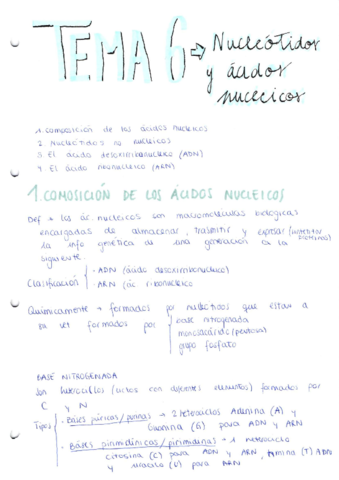 TEMA 6 → Nucleótidos
y ácidos
nucleicos
1. composición de los ácidos nucleicos
2. Nucleótidos no nucleicos
3. El ácido desoxirribonucleico (ADN)
4. El ácido ribonucleico (ARN)
1. COMPOSICIÓN DE LOS ÁCIDOS NUCLEICOS
Def → los ác. nucleicos son macromoléculas biológicas
encargadas de almacenar, trasmitir y expresar (
proteínas)
la info genética de una generación a la
siguiente.
Clasificación
- ADN (ácido desoxirribonucleico)
- ARN (ác ribonucleico
Químicamente → formados por nucleótidos que están a
la vez formados por
base nitrogenada
monosacárido (pentosa)
grupo fosfato
BASE NITROGENADA
Son heterociclos (ciclos con diferentes elementos) formados por
C y N
Tipos
- Bases púricas/purinas → 2 heterociclos Adenina (A) y
Guanina (G) para ADN y ARN
- Bases pirimidínicas/pirimidinas → 1 heterociclo
citosina (C) para ADN y ARN, timina (T) ADN
y uracilo (U) para ARN